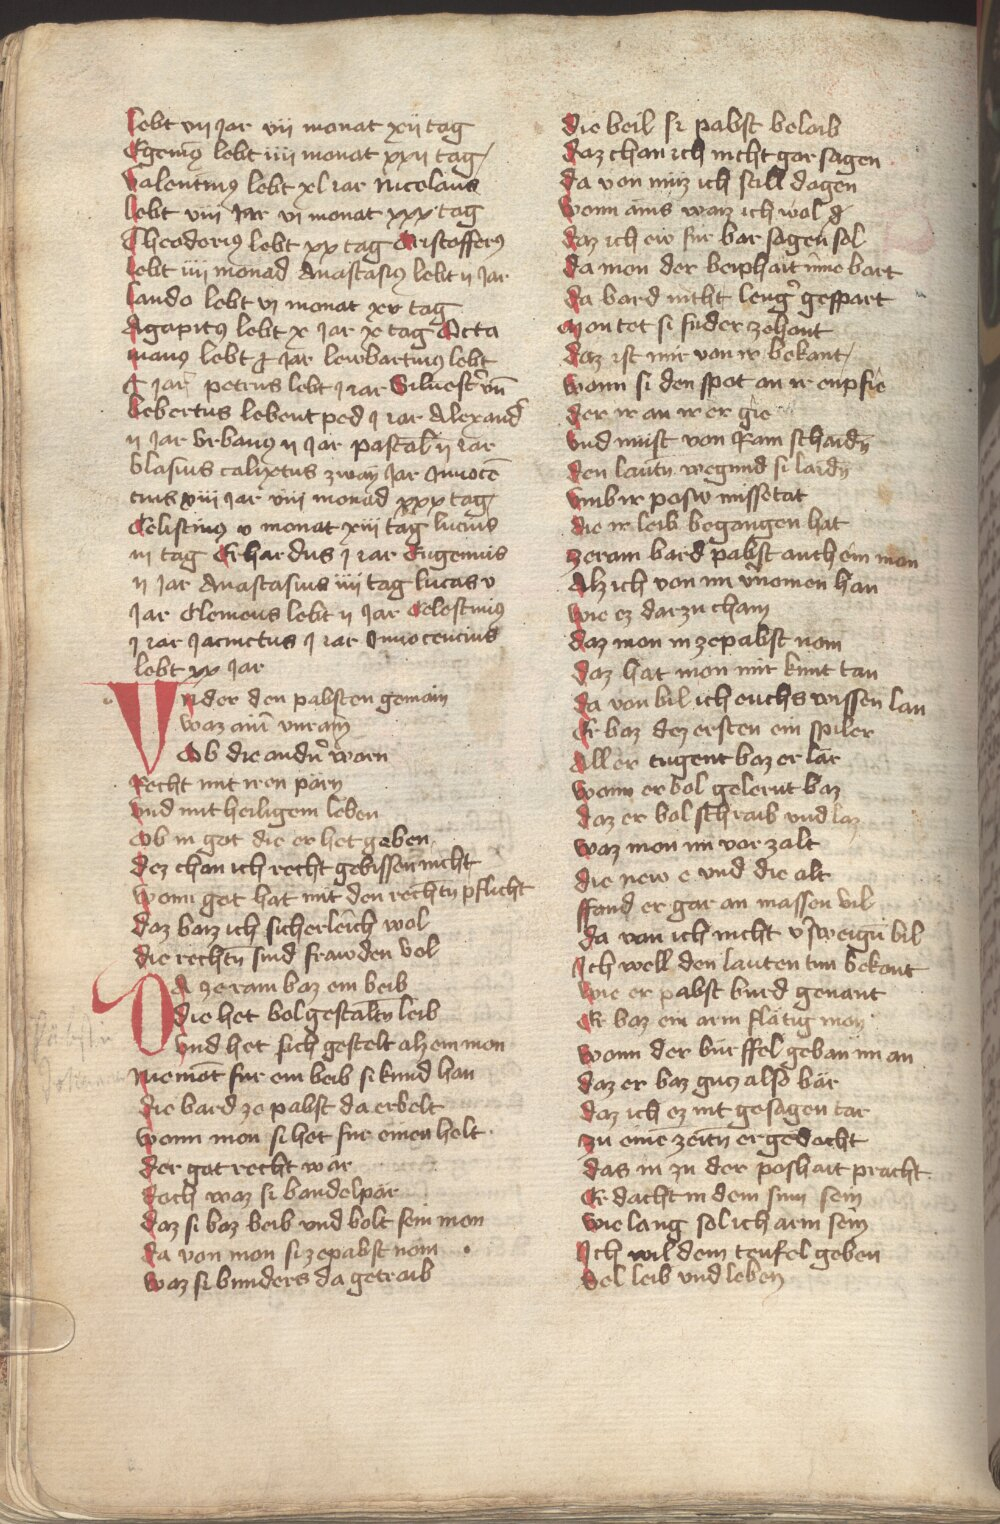 lebt vii Jar viij monat xij tag
Egeniꝰ lebt iiij monat xxij tag /
Valentinꝰ lebt xl iar Nicolaus
lebt viij Jar vj monat xxx tag
Theodoriꝰ lebt xx tag Cristofferꝰ
lebt iiij monad Anastasiꝰ lebt ij Jar
lando lebt vj monat xv tag
Agapitꝰ lebt x Jar x tag Octa
manꝰ lebt Jar lewbartinꝰ lebt
Jar petrus lebt j iar Siluest̾ vn̄
Lebertus lebent ped j iar Alexand̾
ij Jar Vrbanꝰ ij Jar pascal ij iar
blasius calixtus zway Jar Jnnocē
cius xiij Jar viij monad xxx tag
Celistinꝰ v monat xiij tag lucius
iij tag Erhardus j iar Eugenius
ij Jar Anastasius iiij tag lucas v
Jar Clemens lebt ij Jar Celestinꝰ
j iar Jacinctus j iar Jnnocencius
lebt xx Jar
Vnder den pabsten gemain
waz ainē vnrain
Ob die andn̄ warn
Recht mit iren parn
Vnd mit heiligem leben
Ob in got die er het geben
dez chan ich recht gebissen nicht
wann got hat mit den rechtn̄ pflicht
daz baiz ich sicherleich wol
die rechtn̄ sind frawden vol
Da zeram baz ein beib
die het bol gestaltn̄ leib
Vnd het sich gestelt alz ein mon
Niemāt fur ein beib si kund han
die bard ze pabst da erbelt
wann mon si het fur einen helt
der got recht wär
doch waz si bandelpär
daz si baz beib vnd bolt sein mon
da von mon si ze pabst nom
waz si bunders da getraib
die beil si pabst belaib
daz chan ich nicht gar sagen
da von muz ich still dagen
wann ains waiz ich wol
daz ich ew fur bar sagen sol
da mon der beiphait inne bart
da bard nicht leng̾ gespart
mon tet si suder zehant
daz ist mir von ir bekant /
wann si den spot an ir enpfie
der ir an ir er gie
Vnd must von Ram schaidn̄
den lautn̄ wegund si laidn̄
Vmb ir posw missetat
die ir leib begangen hat
zeram bard pabst auch ein man
Alz ich von im v̾nomen han
wie ez dar zu cham
daz mon in ze pabst nom
daz hat mon mir kunt tan
da von bil ich euchs wissen lan
Er baz dez ersten ein spiler
Aller tugent baz er lär
wann er bol gelernt baz
daz er bol schraib vnd laz
waz mon im vor zalt
die new e vnd die alt
ffand er gar an massen vil
da von ich nicht v̾sweign̄ bil
Jch well den lauten tun bekant
wie er pabst burd genant
Er baz ein arm flätig mon
wann der bürffel geban im an
daz er baz gutz also bär
daz ich ez nit gesagen tar
zu einē zeitn̄ er gedacht
das in zu der poshait pracht
Er dacht in dem sinn sein
wie lang sol ich arm sein
Jch wil dem teufel geben
Sel leib vnd leben